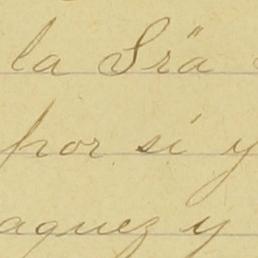 la Sra
por si y
aguez y